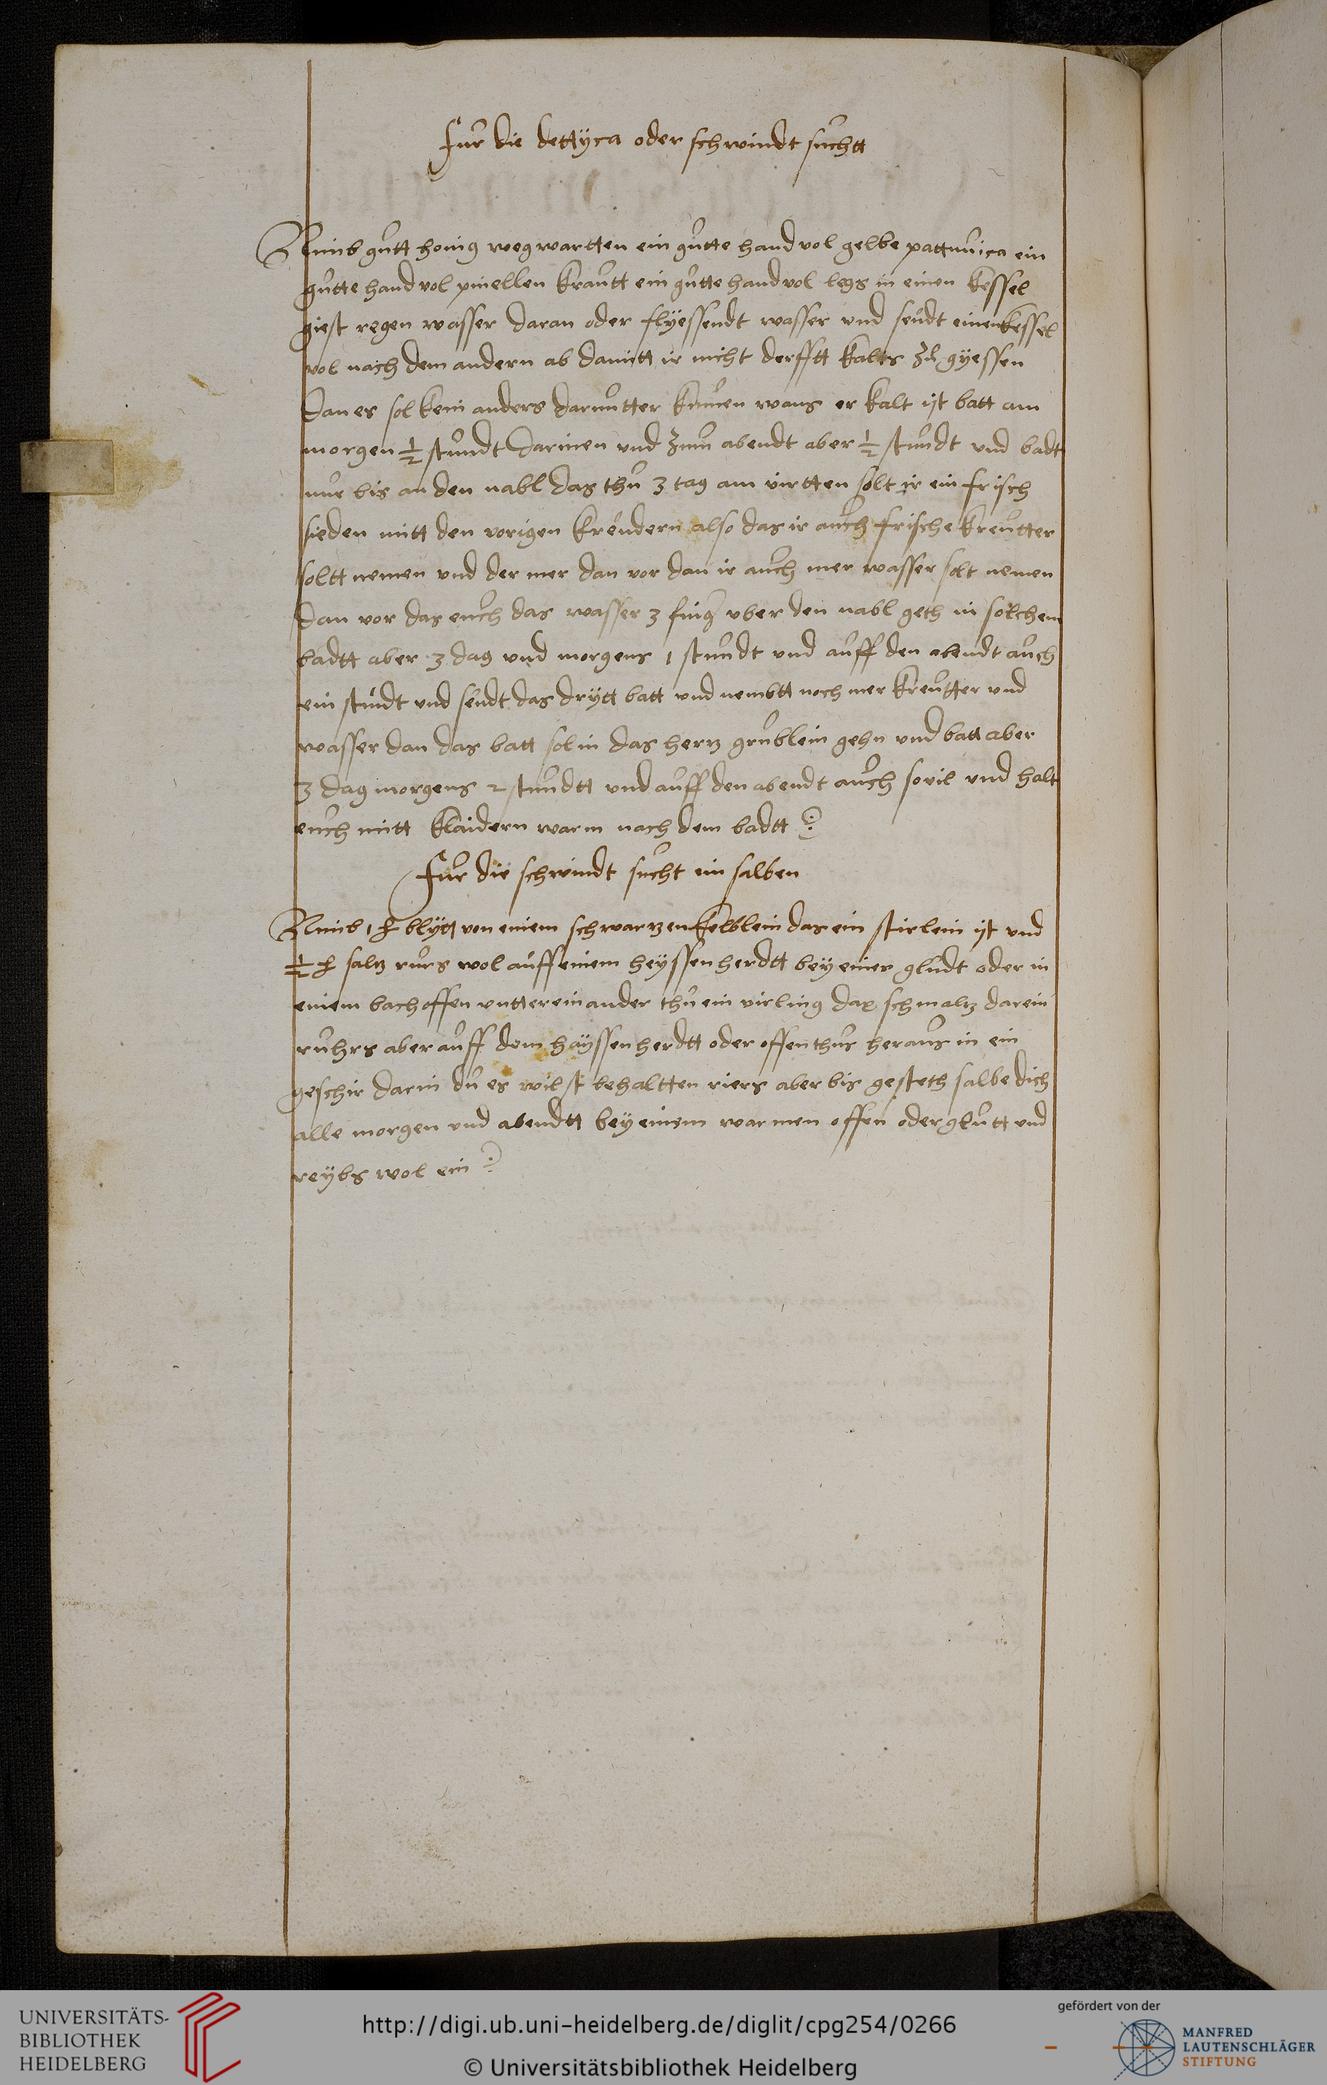 Fur die dettyca oder schwindt suchtt
Nimb gutt honig wegwartten ein gutte hand vol gelbe ein
gutte hand vol krautt ein gutte hand vol legs in einen kessel
giest regen wasser daran oder flyessendt wasser und seudt einen kessel
vol nach dem andern ab damitt ir nicht derfftt kalts zu gyessen
dan es sol kein anders daruntter kumen wans er kalt ist batt am
morgen ½ stundt darinen und zum abendt aber ½ stundt und badt
nur bis an den nabl das thu 3 tag am virtten solt ir ein frisch
sieden mitt den vorigen kreudern also das ir auch frische kreutter
soltt nemen und der mer dan vor dan ir auch mer wasser solt nemen
dan vor das euch das wasser 3 fing uber den nabl geth in solchem
badtt aber 3 dag und morgens 1 stundt und auff den abendt auch
ein stundt und seudt das drytt batt und nembtt noch mer kreutter und
wasser dan das batt sol in das hertz grublein gehn und batt aber
3 dag morgens 2 stundtt und auff den abendt auch sovil und halt
euch mitt klaidern warm nach dem badtt
Fur die schwindt sucht ein salben
Nimb 1 lb blytt von einem schwartzen kelblein das ein stirlein ist und
½ lb saltz rurs wol auff einem heyssen herdtt bey einer gludt oder in
einem bachoffen untter einander thu ein virling dax schmaltz darein
ruhrs aber auff dem hayssen herdtt oder offen thus heraus in ein
geschir darin du es wilst behaltten riers aber bis gesteth salbe dich
alle morgen und abendtt bey einem warmen offen oder glutt und
reybs wol ein
UNIVERSITÄTS-
BIBLIOTHEK
HEIDELBERG
http://digi.ub.uni-heidelberg.de/diglit/cpg254/0266
© Universitätsbibliothek Heidelberg
gefördert von der
MANFRED
LAUTENSCHLÄGER
STIFTUNG